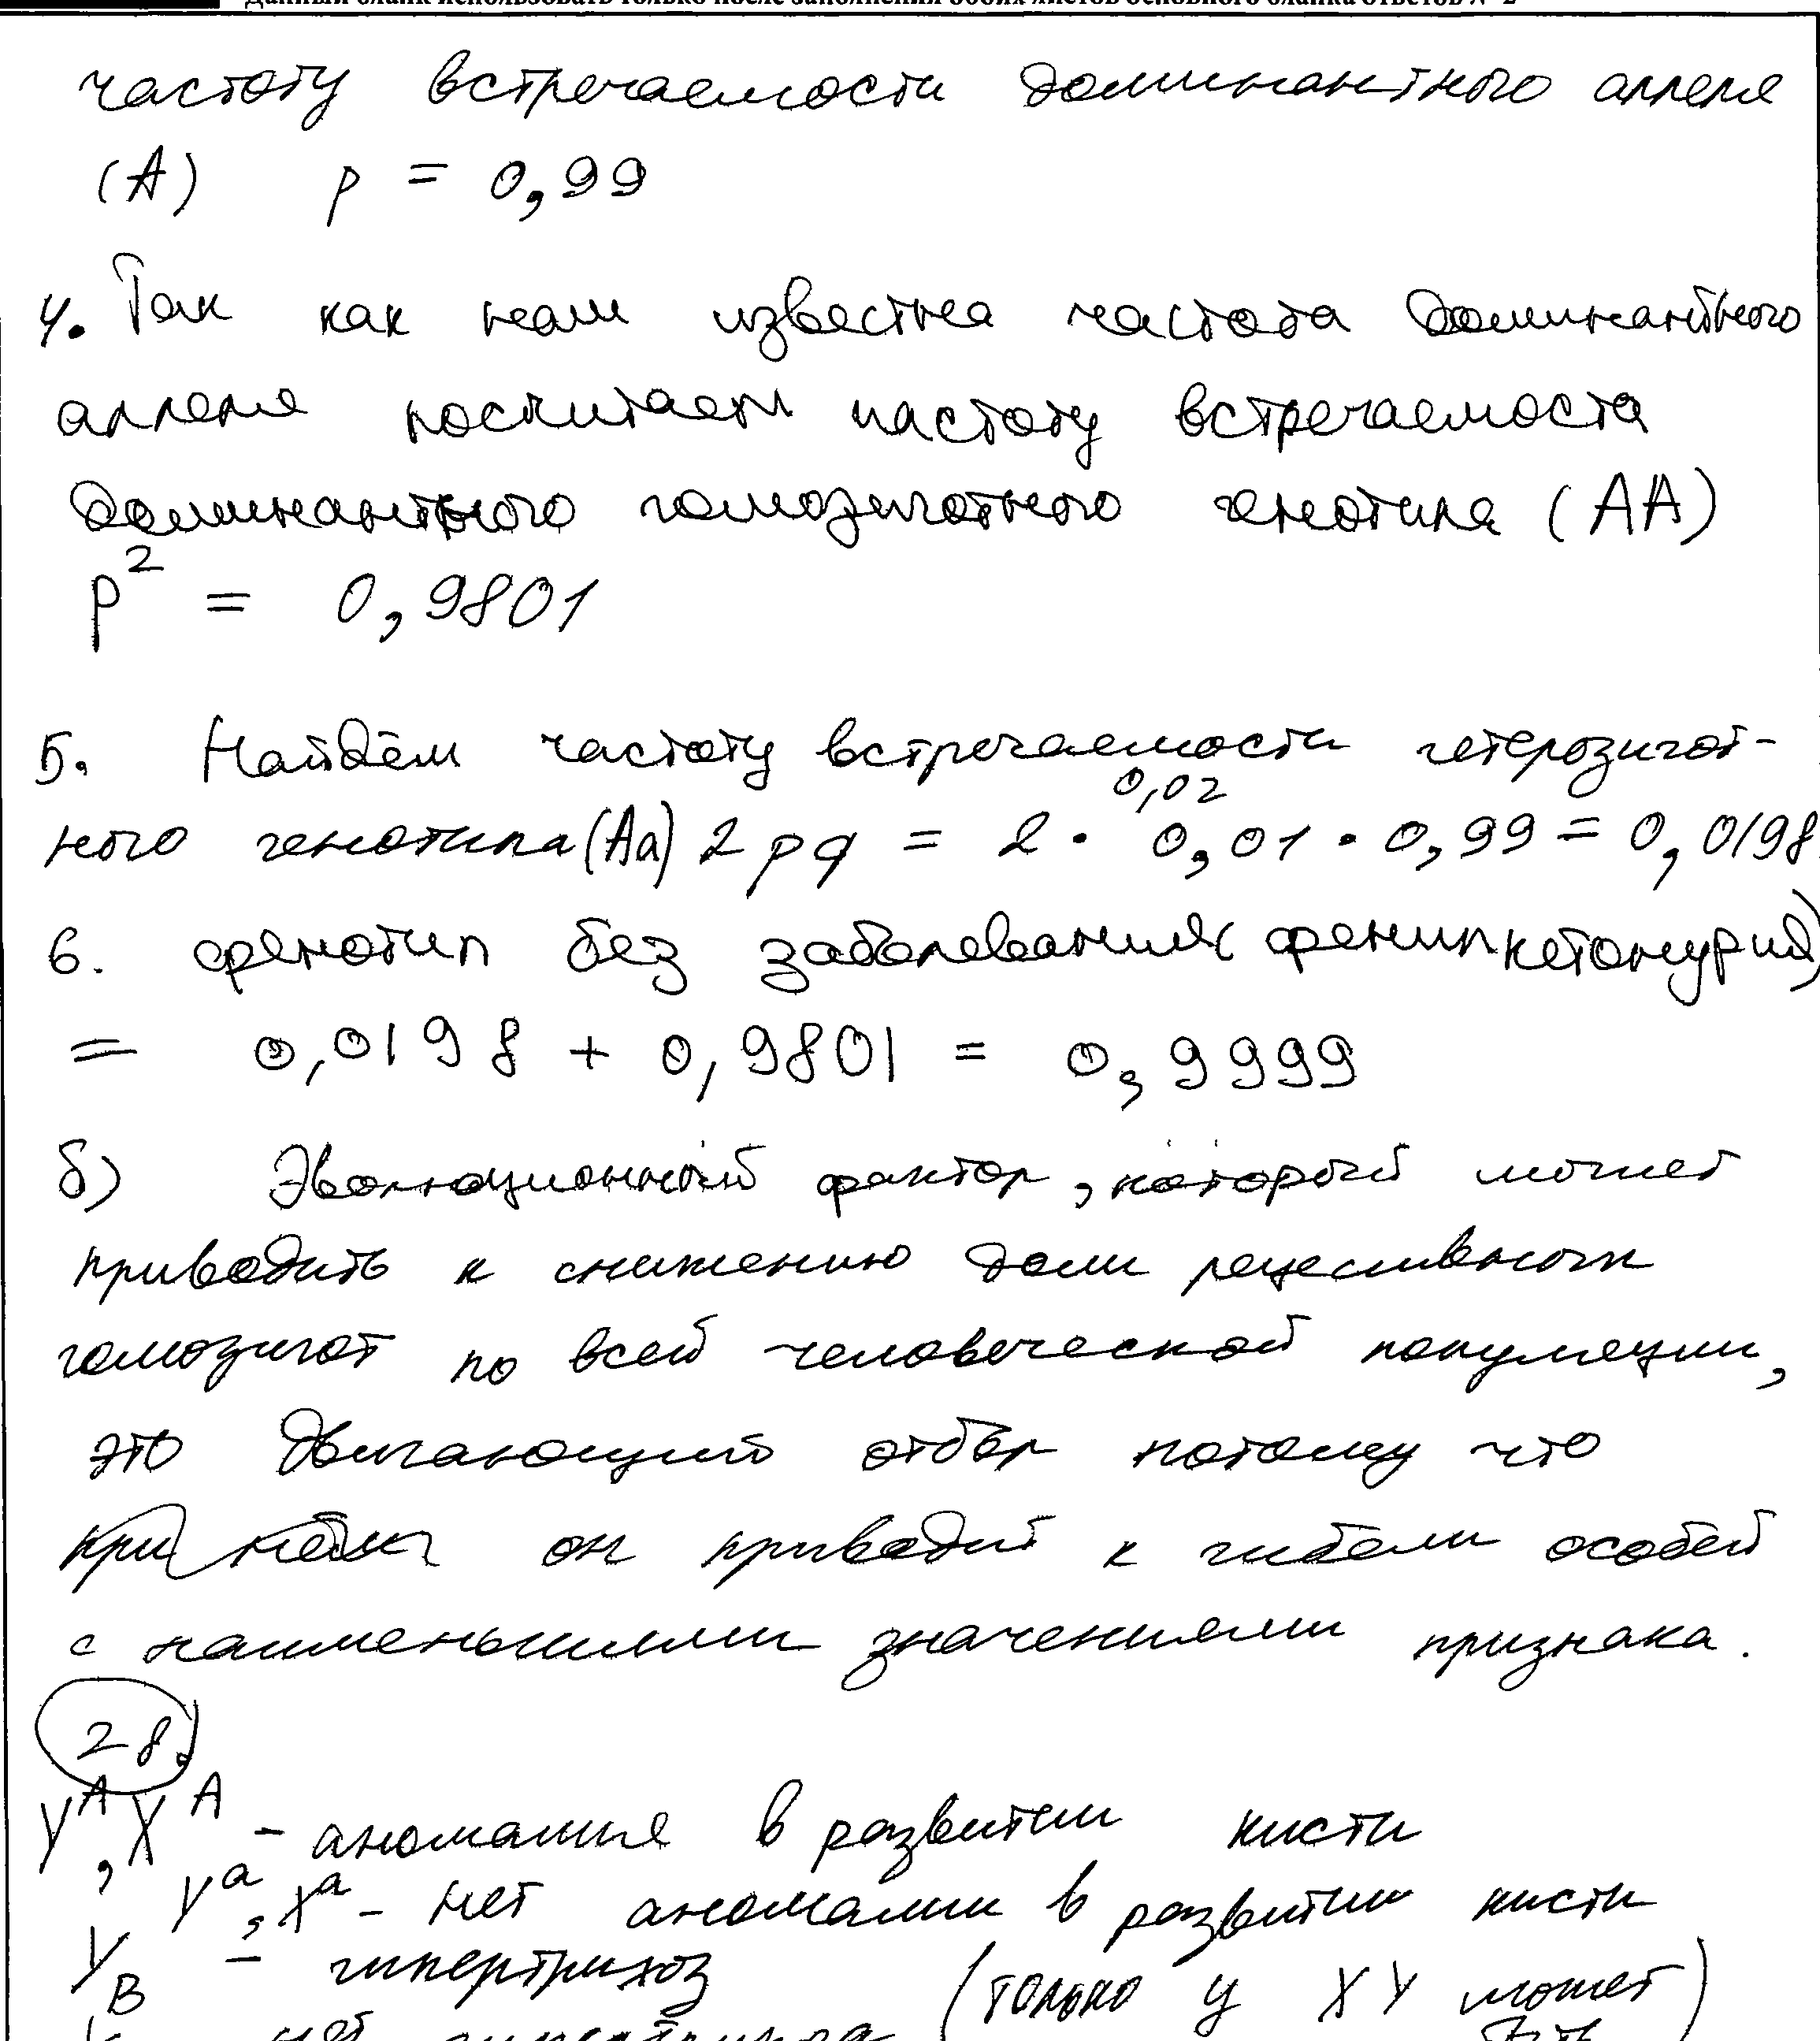 Данный бланк использовать только после заполнения обоих листов основного бланка ответов № 2
частоту встречаемости доминантного аллеля
(А) p = 0,99
4. Так как нам известна частота доминантного
аллеля посчитаем частоту встречаемоста
доминантного гомозиготного генотипа (АА)
p² = 0,9801
5. Найдём частоту встречаемости гетерозигот-
0,02
ного генотипа (Аа) 2pq = 2 · 0,01 · 0,99 = 0,0198
6. фенотип без заболевания (фенилкетонурия)
= 0,0198 + 0,9801 = 0,9999
б) Эволюционный фактор, который может
приводить к снижению доли рецессивных
гомозигот по всей человеческой популяции,
это движущий отбор потому что
он приводит к гибели особей
с наименьшими значениями признака.
28.
Y^A, X^A - аномалия в развитии кисти
Y^a, X^a - нет аномалии в развитии кисти
Y_B - гипертрихоз (только у XY может
нет гипертрихоза быть